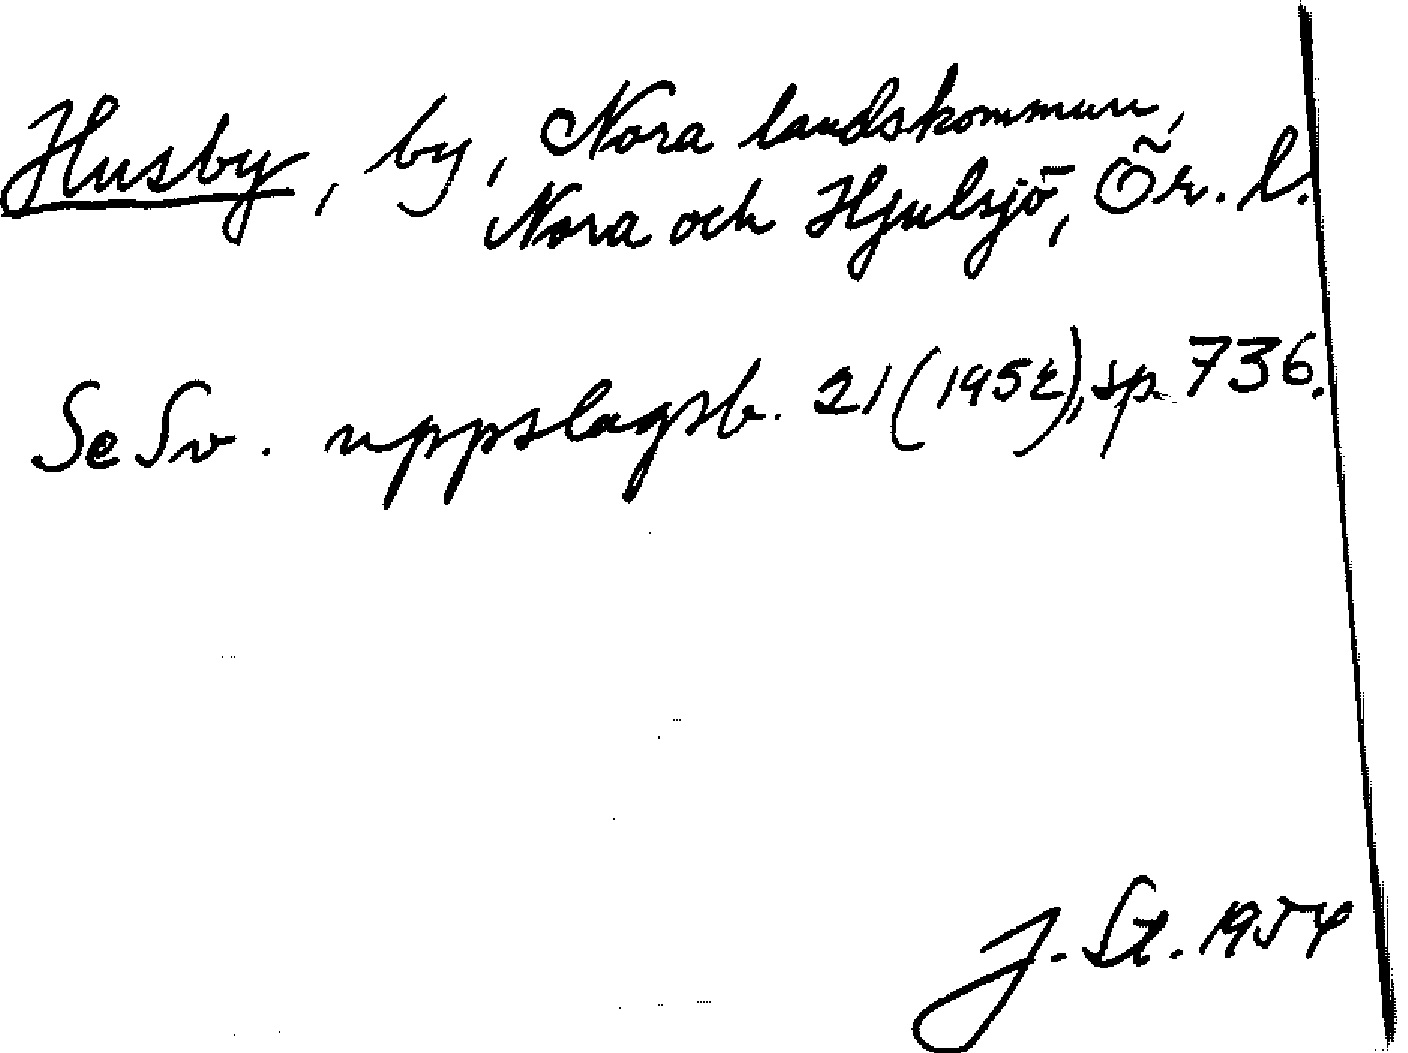 Husby, by, Nora landskommun,
Nora och Hjulsjö, Ör. l.
Se Sv. uppslagsb. 21 (1952), sp. 736.
J. St. 1954